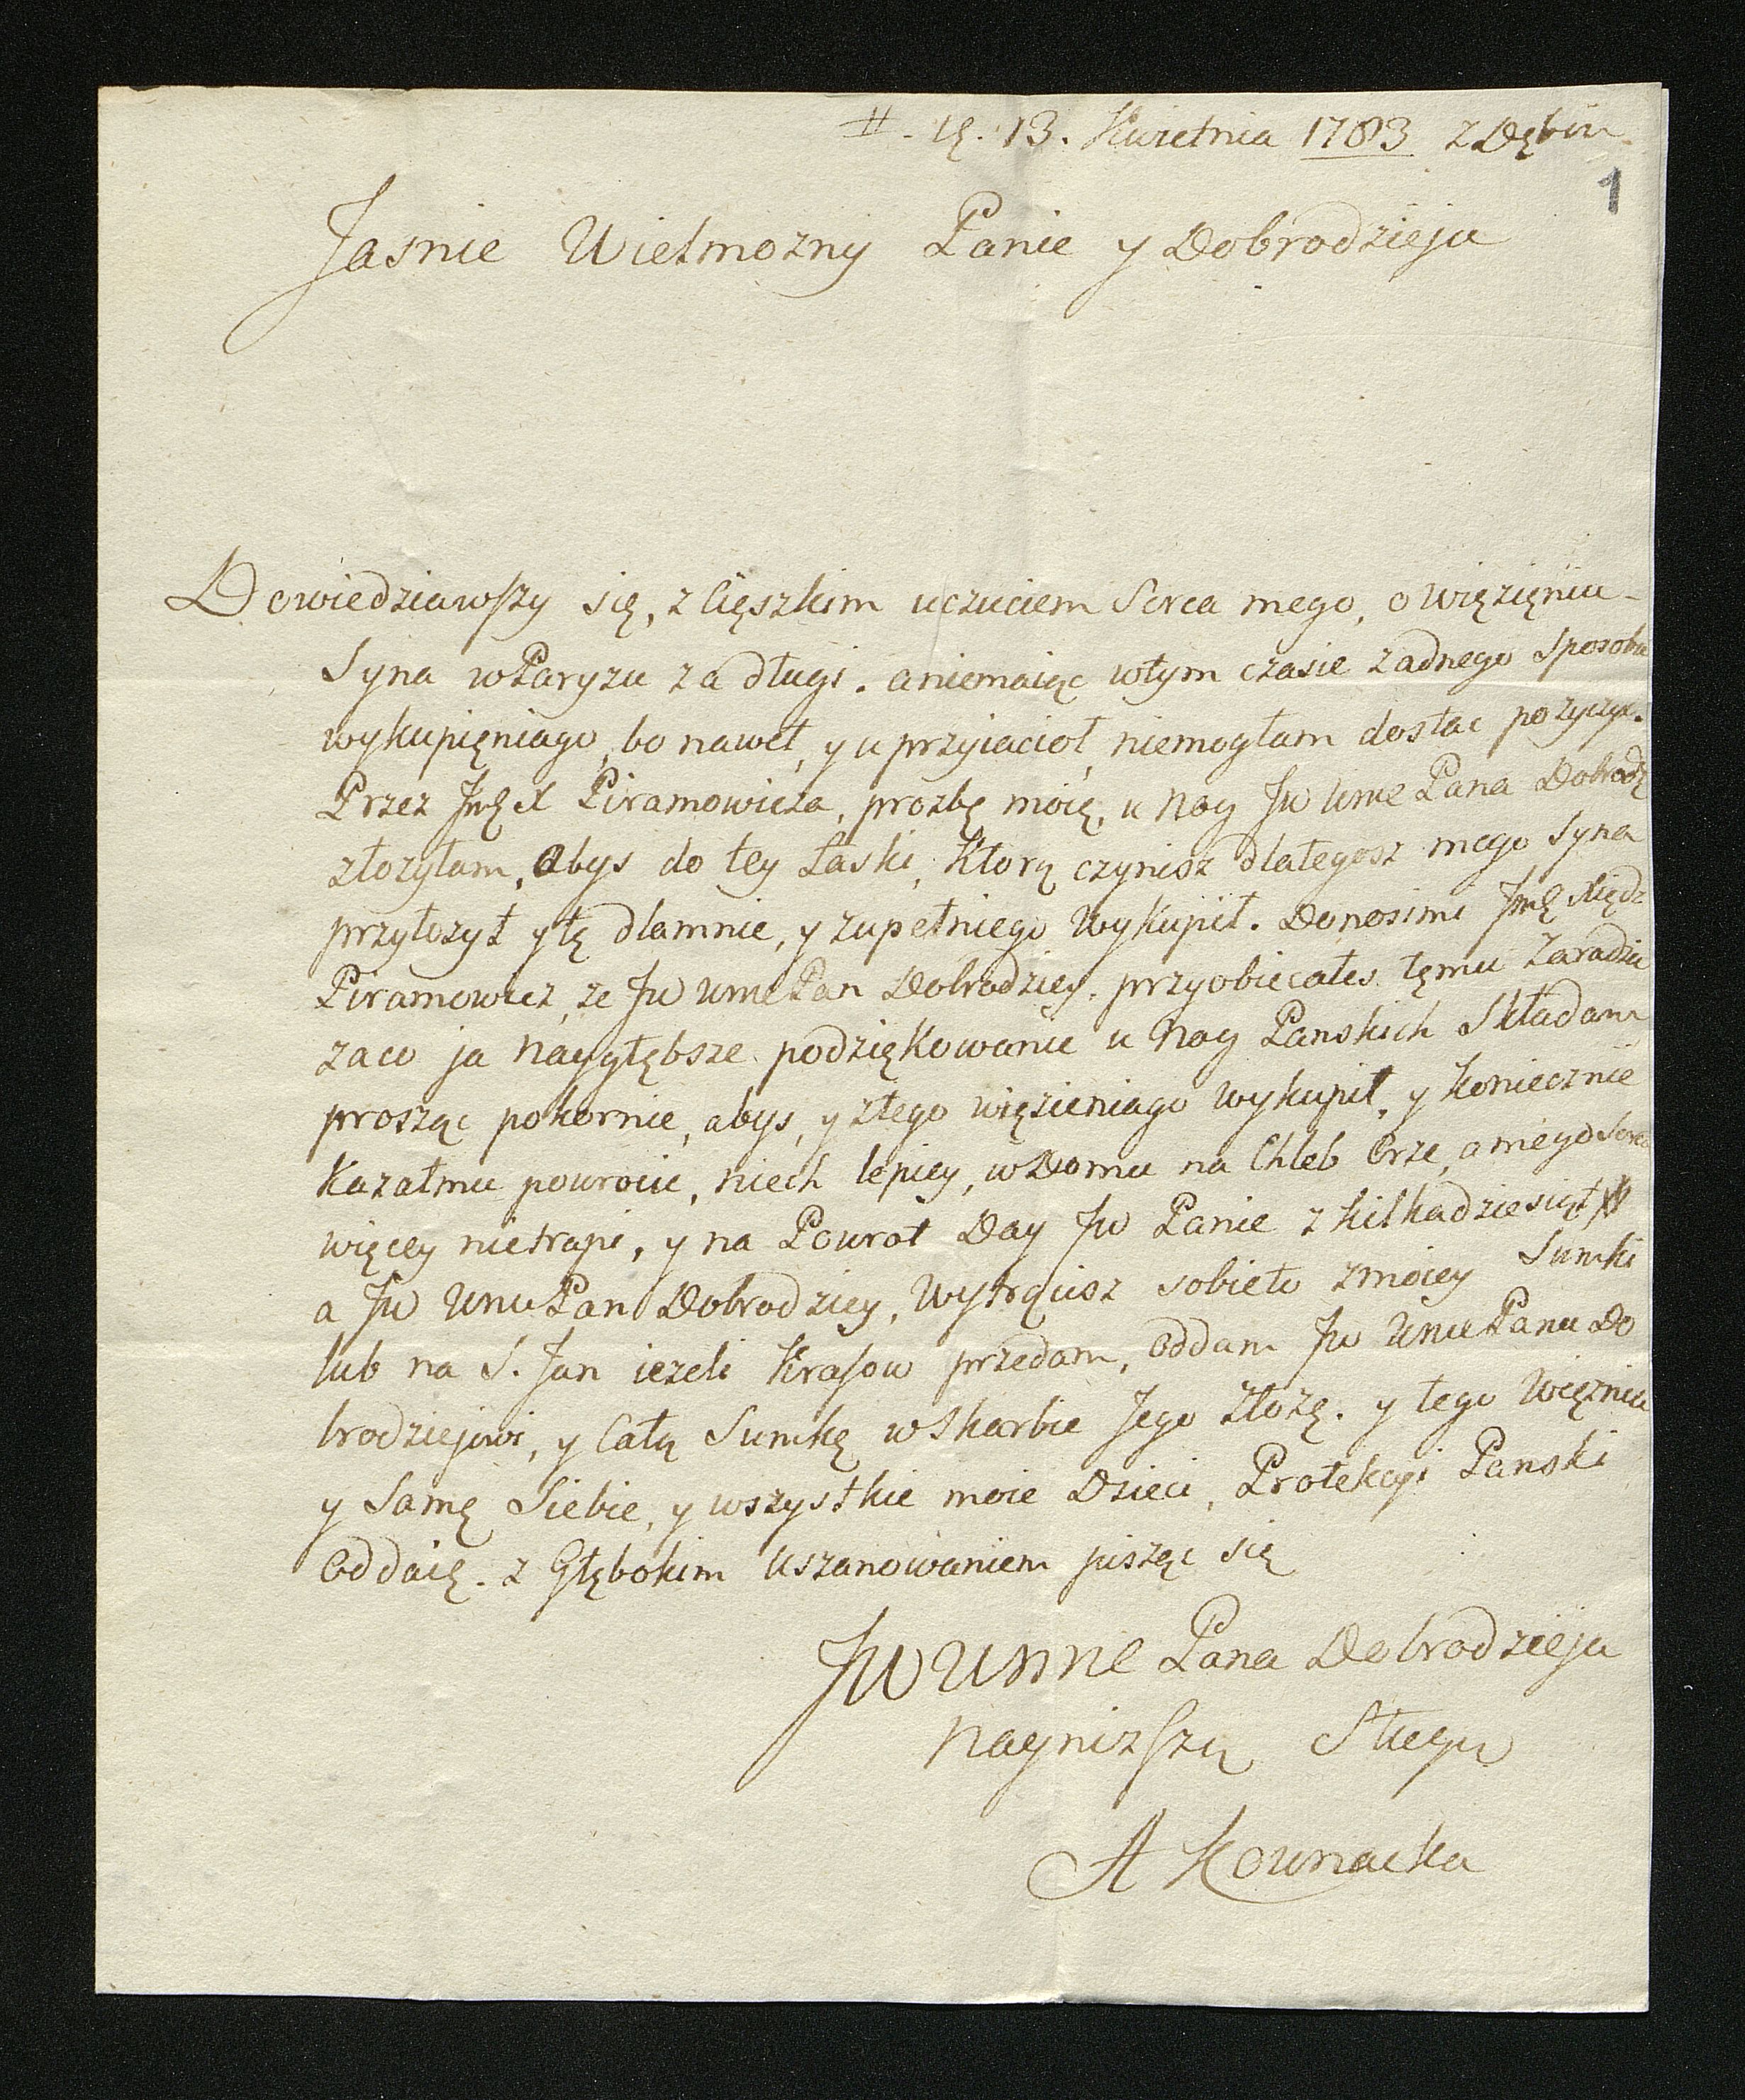 13. Kwietnia 1783 z Dębin
1
Jasnie Wielmozny Panie y Dobrodzieju
Dowiedziawszy się, z Cięszkim uczuciem Serca mego, o więzięniu
Syna w Paryzu za długi. a niemaiąc wtym czasie zadnego Sposobu
wykupięniago, bo nawet, y u przyiacioł, niemogłam dostac pozyczyc.
Przez Jmę X Piramowicza, prozbę moię, u Nog Jw Ume Pana Dobrodz
złozyłam, abys do tey Łaski, Ktorą czynisz dlategosz mego Syna
przyłozył y tę dlamnie, y zupełniego Wykupił. Donosimi Jmę Xiędz
Piramowicz, ze Jw Ume Pan Dobrodziey, przyobiecałes tęmu zaradzic
zaco ja Naygłębsze podziękowanie u Nog Panskich Składam
prosząc pokornie, abys, y ztego więzieniago wykupił, y koniecznie
Kazałmu powrocic, niech lepiey, w Domu na Chleb Orze, a meyo Serca
więcey nietrapi, y na Powrot Day Jw Panie z kilkadziesiąt
a Jw Ume Pan Dobrodziey, Wytrącisz sobieto zmoiey Sumki
lub na S. Jan iezeli Krasow przedam, Oddam Jw Ume Panu Do
brodziejowi, y Całą Sumkę w Skarbie Jego Złozę. y tego Więznia
y Samę Siebie, y wszystkie moie Dzieci, Protekcyi Panski
Oddaię. z Głębokim Uszanowaniem piszęc się
JW Umne Pana Dobrodzieja
Nayniższą Sługą
A Kownacka